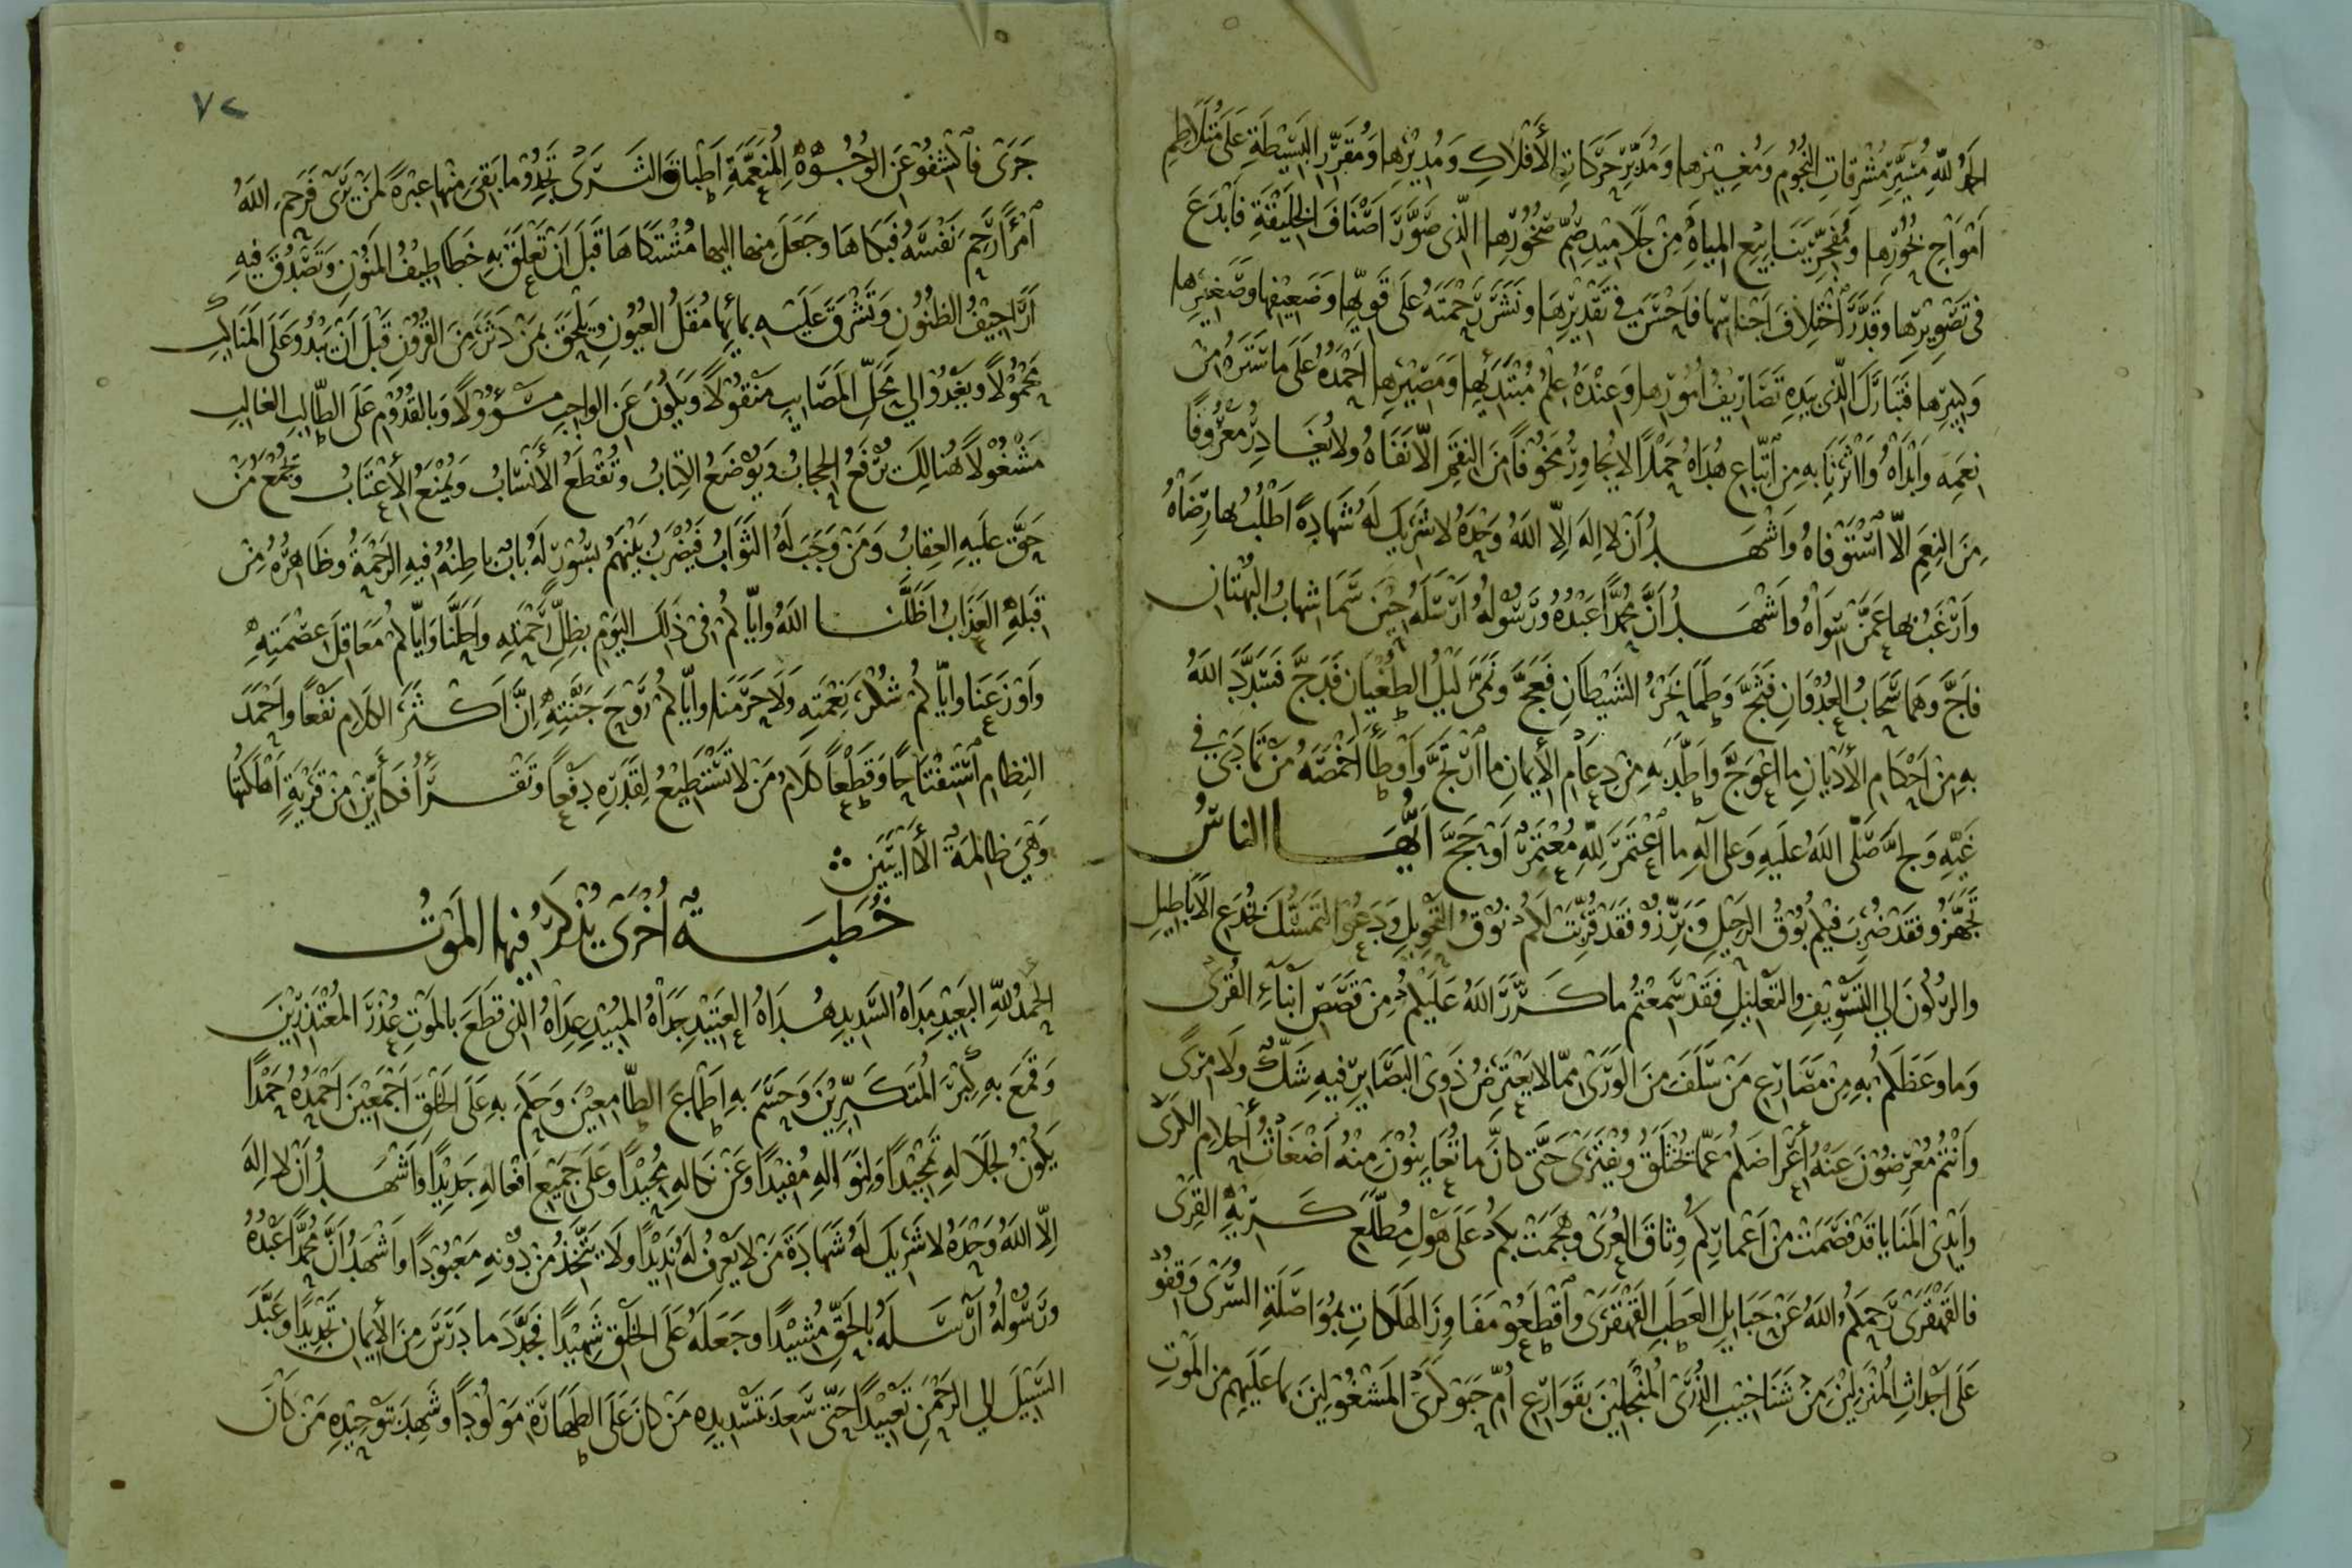 الحمد لله مسير مشرقات النجوم ومغيرها ومدبر حركات الأفلاك ومديرها ومقرر البسيطة على متلاطم
أمواج بحورها ومفجر ينابيع المياه من جلاميد صم صخورها الذي صور أصناف الخليقة فأبدع
في تصويرها وقدر اختلاف أجناسها فأحسن في تقديرها ونشر رحمته على قويها وضعيفها وصغيرها
وكبيرها فتبارك الذي بيده تصاريف أمورها وعنده علم مبتدئها ومصيرها أحمده على ما ستره من
نعمه وأبداه وآثرنا به من اتباع هداه حمدا لا يجاور مخوفا من النقم إلا نفاه ولا يغادر معروفا
من النعم إلا استوفاه وأشهد أن لا إله إلا الله وحده لا شريك له شهادة أطلب بها رضاه
وأرغب بها عمن سواه وأشهد أن محمدا عبده ورسوله أرسله حين سما شهاب البهتان
فأج وهما سحاب العدوان فثج وطما بحر الشيطان فعج ليل الطغيان فدج فسدد الله
به من أحكام الأديان ما اعوج وأطد به من دعام الإيمان ما ارتج وأوطأ أخمصه من تمادى في
غيه ولج صلى الله عليه وعلى آله ما اعتمر لله معتمر أو حج أيها الناس
تجهزو فقد ضرب فيكم بوق الرحيل وبرزو فقد قربت لكم نوق التحويل ودعوا التمسك بخدع الأباطيل
والركون إلى التسويف والتعليل فقد سمعتم ما كرر الله عليكم من قصص أنباء القرى
وما وعظكم به من مصارع من سلف من الورى مما لا يعترض ذوى البصاير فيه شك ولا مرى
وأنتم معرضون عنه أعراضكم عما يختلق ويفترى حتى كأن ما تعاينون منه أضغاث أحلام الكرى
وأيدى المنايا قد فصمت من أعماركم وثاق العرى وهجمت بكم على هول مطلع كريه القرى
فالقهقرى رحمكم الله عن حبايل العطب القهقرى واقطعو مفاوز الهلكات بمواصلة السرى وقفو
على أجداث المنزلين من شناخيب الذرى المنجلين بقوارع أم حبوكرى المشغولين بما عليهم من الموت
٧٢
جرى فاكشفو عن الوجوه المنعمة أطباق الثرى تجدو ما بقي منها عبرة لمن يرى فرحم الله
امرأ رحم نفسه فبكاها وجعل منها إليها مشتكاها قبل أن تعلق به خطاطيف المنون وتصدق فيه
أراجيف الظنون وتشرق عليه بمائها مقل العيون ويلحق بمن دثر من القرون قبل أن يبدو على المناكب
محمولا ويغدو إلى محل المصايب منقولا ويكون عن الواجب مسؤولا وبالقدوم على الطالب الغالب
مشغولا هنالك يرفع الحجاب ويوضع الكتاب وتقطع الأنساب ويمنع الأعتاب ويجمع من
حق عليه العقاب ومن وجب له الثواب فيضرب بينهم بسور له باب باطنه فيه الرحمة وظاهره من
قبله العذاب أظلنا الله وإياكم في ذلك اليوم بظل رحمته وأحلنا وإياكم معاقل عصمته
وأوزعنا وإياكم شكر نعمته ولا حرمنا وإياكم روح جنته إن أكثر الكلام نفعا وأحمد
النظام استفتاحا وقطعا كلام من لا تستطيع لقدره دفعا وتقرأ فكأين من قرية أهلكتها
وهي ظالمة الآيتين
خطبة أخرى يذكر فيها الموت
الحمد لله البعيد مداه السديد هداه العتيد جداه المبيد عداه الذي قطع بالموت عذر المعتذرين
وقمع به كبر المتكبرين وحسم به أطماع الطامعين وحكم به على الخلق أجمعين أحمده حمدا
يكون لجلاله تمجيدا ولنواله مفيدا وعن نكاله محيدا وعلى جميع أفعاله جديدا وأشهد أن لا إله
إلا الله وحده لا شريك له شهادة من لا يعرف له نديدا ولا يتخذ من دونه معبودا وأشهد أن محمدا عبده
ورسوله أرسله بالحق مشيدا وجعله على الخلق شهيدا فجدد ما درس من الإيمان تجديدا وعبد
السبيل إلى الرحمن تعبيدا حتى سعد بتسديده من كان على الطهارة مولودا وشهد بتوحيده من كان